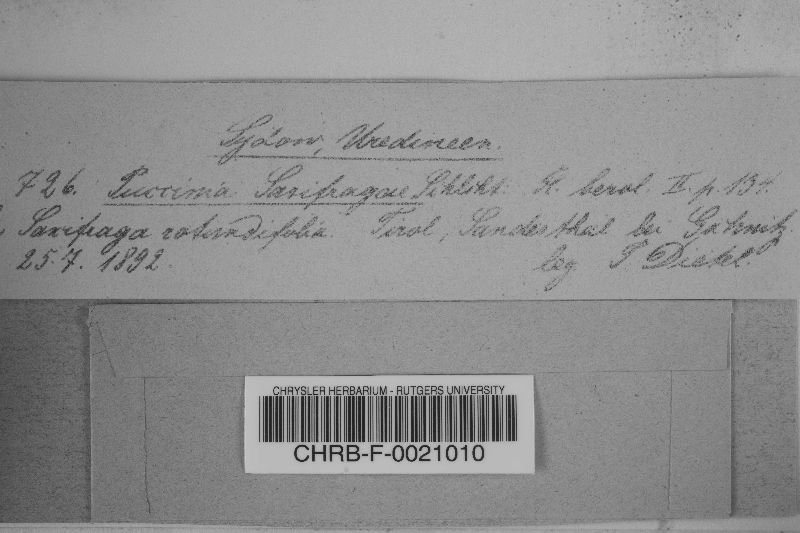 Sydow, Uredineen.
726. Puccinia Saxifragae Schlcht. Fl. berol. II p. 134.
Saxifraga rotundifolia. Tirol, Sandesthal bei Gschnitz.
25.7. 1892. leg. P. Dietel.
CHRYSLER HERBARIUM - RUTGERS UNIVERSITY
CHRB-F-0021010